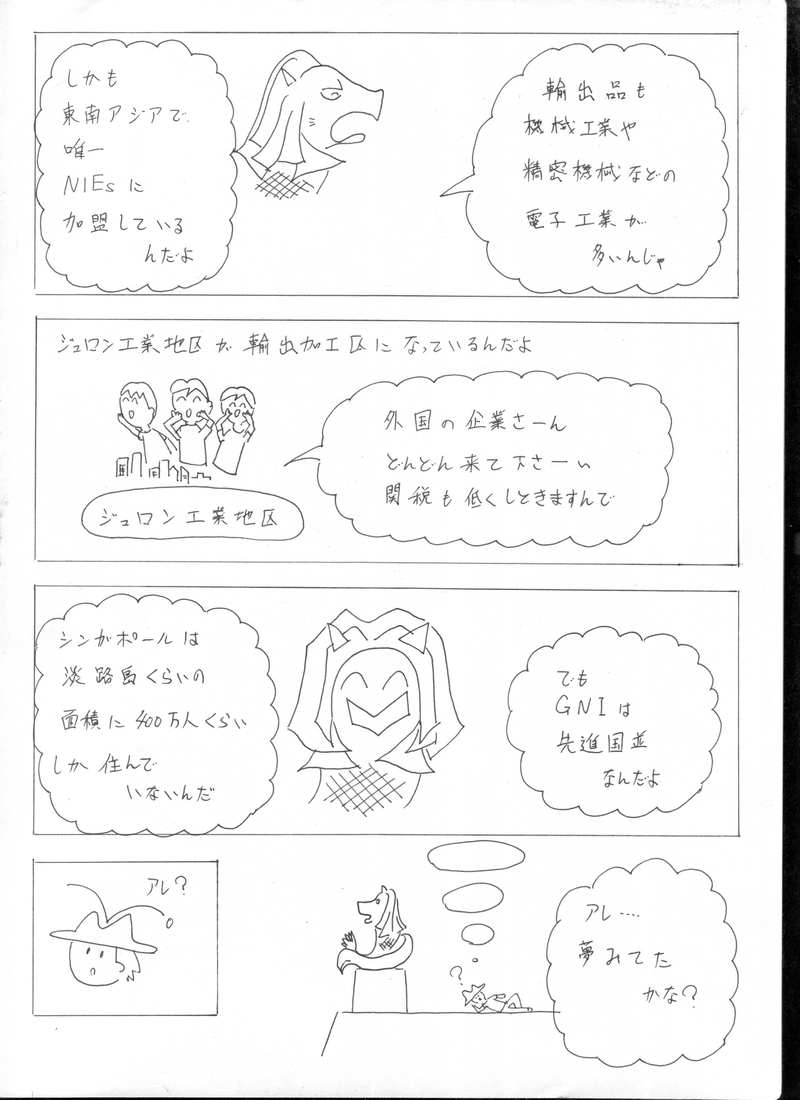 輸出品も
機械工業や
精密機械などの
電子工業が
多いんじゃ
しかも
東南アジアで
唯一
NIEsに
加盟している
んだよ
ジュロン工業地区が輸出加工区になっているんだよ
外国の企業さーん
どんどん来て下さーい
関税も低くしときますんで
ジュロン工業地区
でも
GNIは
先進国並
なんだよ
シンガポールは
淡路島くらいの
面積に400万人くらい
しか住んで
いないんだ
アレ?
?
アレ‥‥
夢みてた
かな?